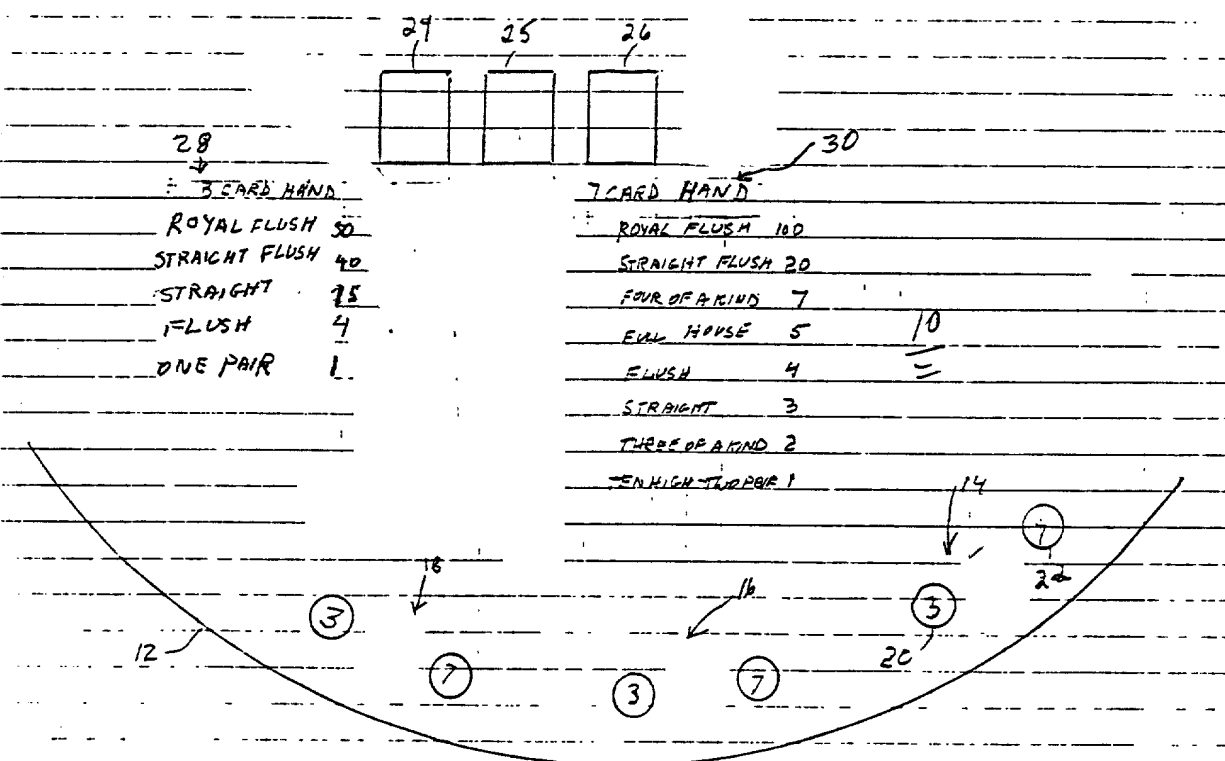 24 25 26
28
30
3 CARD HAND
ROYAL FLUSH 50
STRAIGHT FLUSH 40
STRAIGHT
FLUSH 4
ONE PAIR 1
7 CARD HAND
ROYAL FLUSH 100
STRAIGHT FLUSH 20
FOUR OF A KIND 7
FULL HOUSE 5
FLUSH 4
STRAIGHT 3
THREE OF A KIND 2
TEN HIGH TWO PAIR 1
10
14
7
22
18
16
3
3
20
12
7
3
7